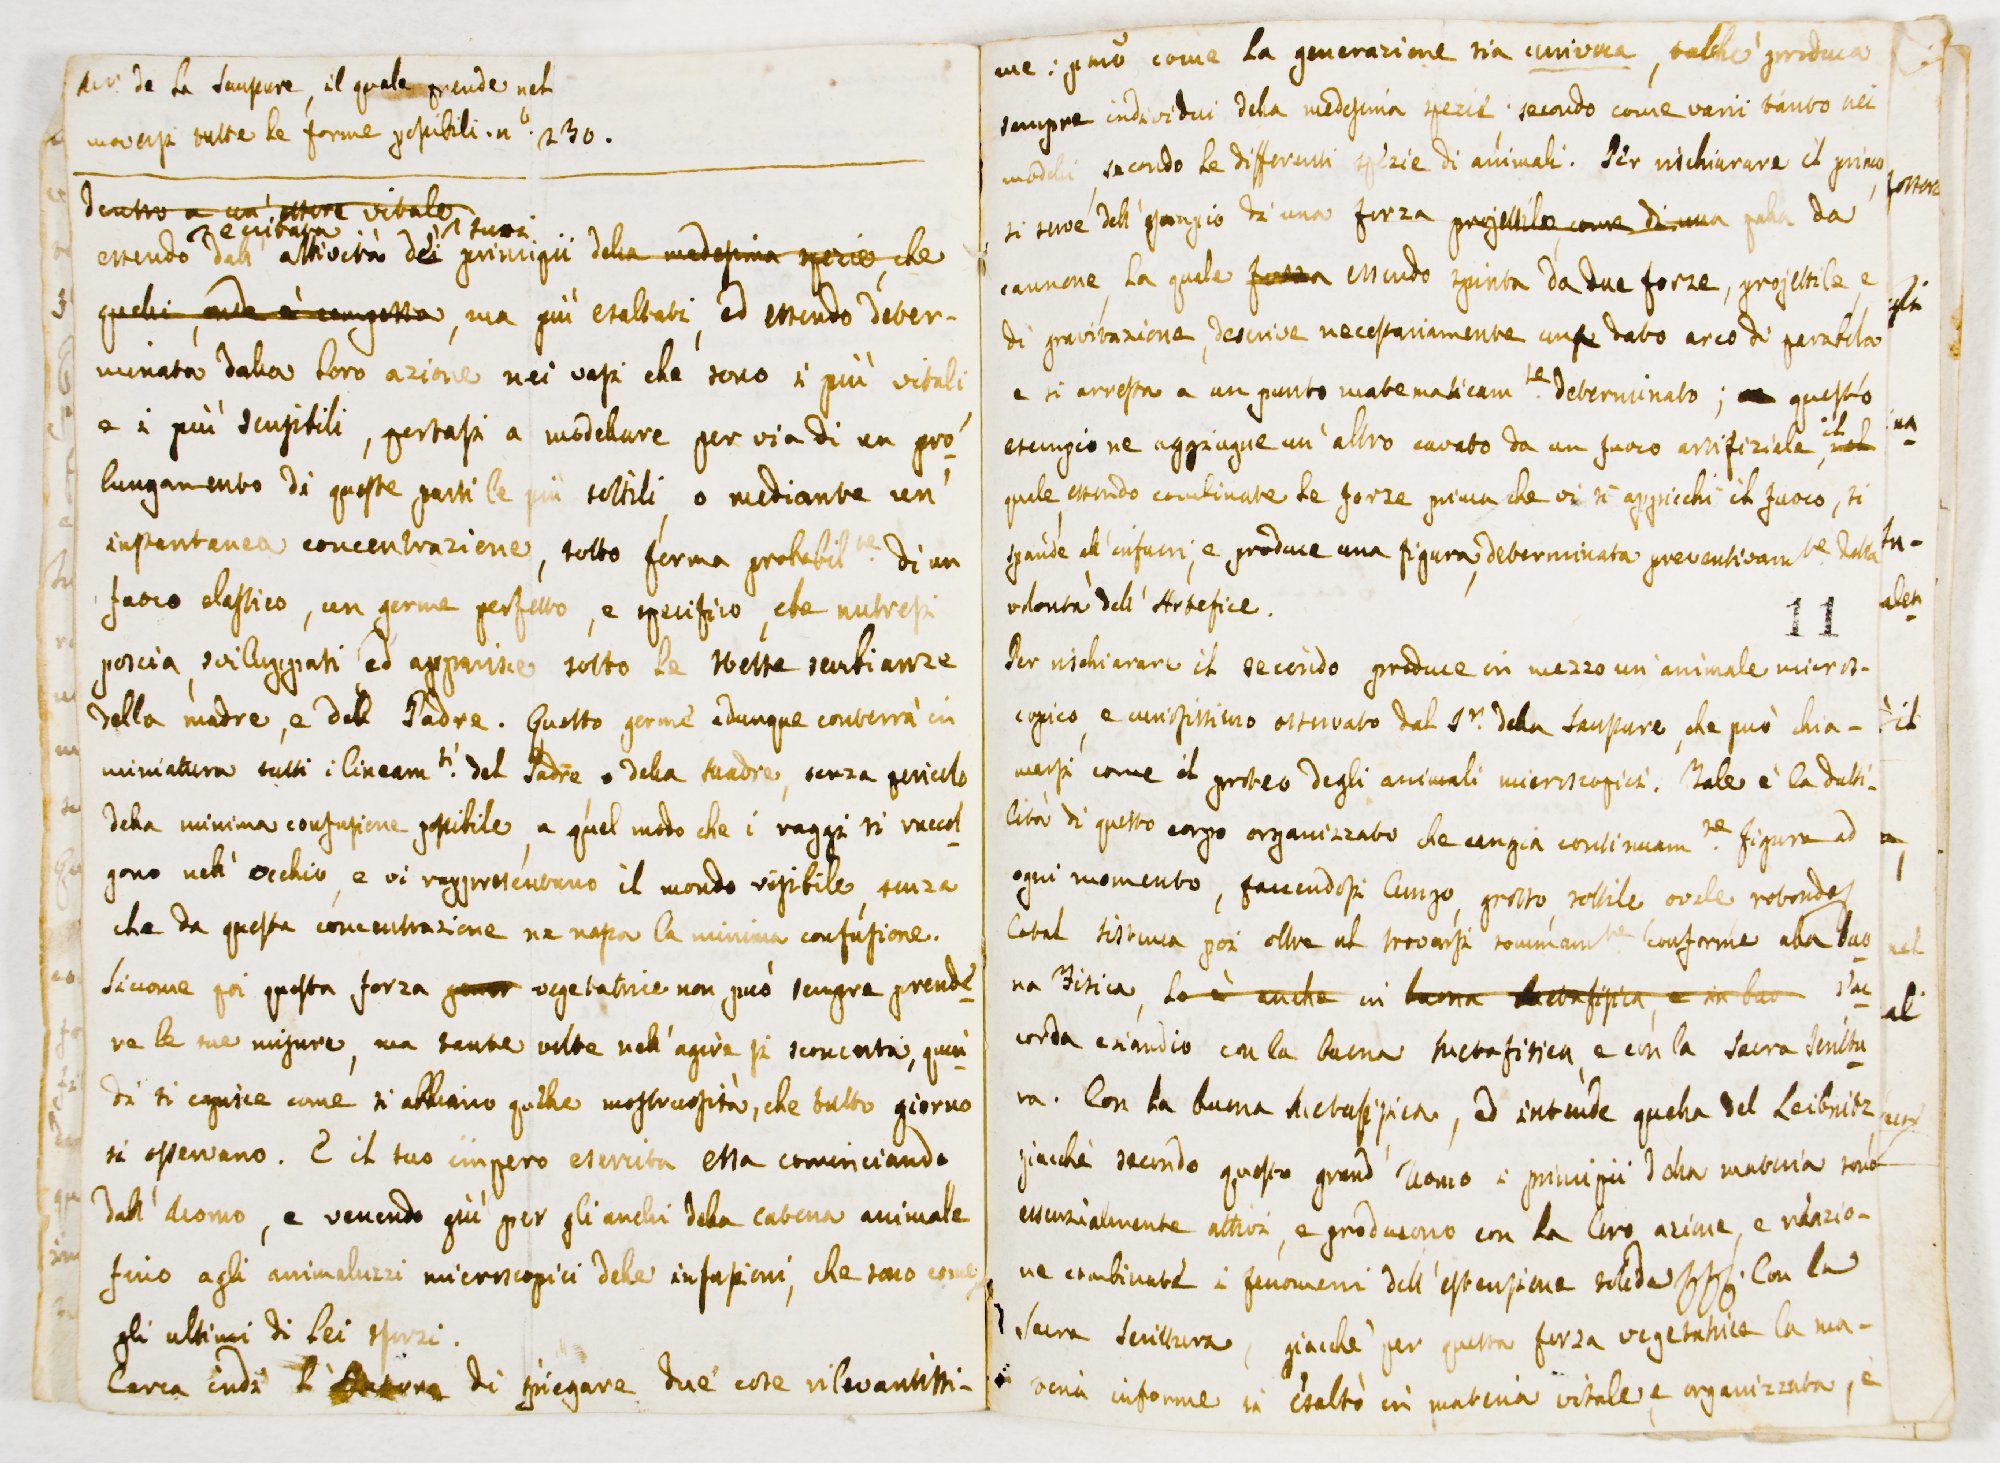 de la Saussure, il quale prende nel
moversi tutte le forme possibili. n.° 230.
dentro a un' essere vitale
ecutata suoi
essendo dall' attività dei principii della medesima spezie, che
quelli, onde è composto, ma più esaltati, ed essendo deter-
minata dalla loro azione nei vasi che sono i più vitali
e i più sensibili, portasi a modellare per via di un pro-
lungamento di queste parti le più sottili, o mediante un'
instantanea concentrazione, sotto forma probabil.te di un
fuoco elastico, un germe perfetto, e specifico, che nutresi
poscia, sviluppasi, ed apparisce sotto le stesse sembianze
della madre, e del Padre. Questo germe adunque conterrà in
miniattura tutti i lineam.ti del Padre o della Madre, senza pericolo
della minima confusione possibile, a quel modo che i raggi si raccol-
gono nell' occhio, e vi rappresentano il mondo visibile, senza
che da questa concentrazione ne nasca la minima confusione.
Siccome poi questa forza vegetatrice non può sempre prende-
re le sue misure, ma tante volte nell' agire si sconcerta, quin-
di si capisce come si abbiano quelle mostruosità, che tutto giorno
si osservano. E il suo impero esercita essa cominciando
dall' Uomo, e venendo giù per gli anelli della catena animale
fino agli animaluzzi microscopici delle infusioni, che sono come
gli ultimi di lei sforzi.
Cerca indi l' Autore di spiegare due cose rilevantissi-
me: primo come la generazione sia univoca, talché produca
sempre individui della medesima spezie. secondo come varii tanto nei
modelli, secondo le differenti spezie di animali. Per rischiarare il primo,
si serve dell' esempio di una forza projettile, come di una palla da
cannone, la quale forza essendo spinta da due forze, projettile, e
di gravitazione, descrive necessariamente un dato arco di parabola
e si arresta a un punto matematicam.te determinato; a questo
esempio ne aggiugne un' altro cavato da un fuoco artifiziale, il nel
quale, essendo combinate le forze prima che vi si appicchi il fuoco, si
spande all' infuori, e produce una figura, determinata preventivam.te dalla
volontà dell' Artefice.
11
Per rischiarare il secondo produce in mezzo un' animale micros-
copico, e curiosissimo osservato dal S.r della Saussure, che può chia-
marsi come il proteo degli animali microscopici. Tale è la dutti-
lità di questo corpo organizzato che cangia continuam.te figura ad
ogni momento, facendosi lungo, grosso, sottile ovale rotondo
Cotal sistema poi oltre al trovarsi sommam.te conforme alla buo-
na Fisica, lo è anche in buona Metafisica, e in buo s'ac-
corda eziandio con la buona Metafisica, e con la Sacra Scrittu-
ra. Con la buona Metafisica, ed intende quella del Leibnitz
giacchè secondo questo grand' Uomo i principii della materia sono
essenzialmente attivi, e producono con la loro azione, e reazio-
ne combinate i fenomeni dell' estensione solida. Con la
Sacra Scrittura, giacchè per questa forza vegetatrice la ma-
teria informe si esaltò in materia vitale, e organizzata, e